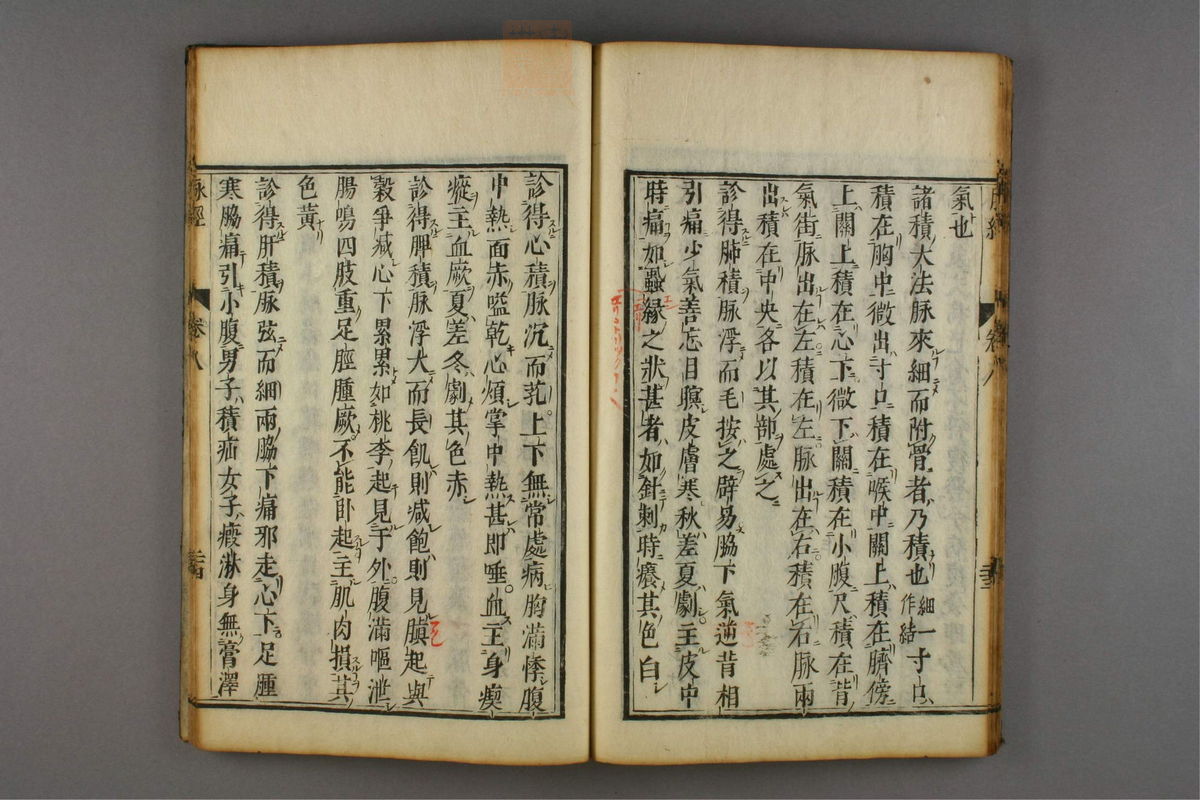 氣也
諸積大法脉來細而附骨者乃積也細一作結寸口
積在胸中微出寸口積在喉中關上積在臍傍
上關上積在心下微下關積在小腹尺積在
氣街脉出在左積在左脉出在右積在右脉兩
出積在中央各以其部處之
診得肺積脉浮而毛按之辟易脇下氣逆背相
引痛少氣善忘目瞑皮膚寒秋差夏劇主皮中
時痛如蝨縁之狀甚者如針刺時癢其色白
診得心積脉沉而芤上下無常處病胸滿悸腹
中熱面赤嗌乾心煩掌中熱甚即唾血主身瘈
瘲主血厥夏差冬劇其色赤
診得脾積脉浮大而長飢則減飽則見䐜起與
穀爭減心下累累如桃李起見于外腹滿嘔泄
腸鳴四肢重足脛腫厥不能卧起主肌肉損其
色黃
診得肝積脉弦而細兩脇下痛邪走心下足腫
寒脇痛引小腹男子積疝女子瘕淋身無膏澤
脉經
卷八
三十四
卷八